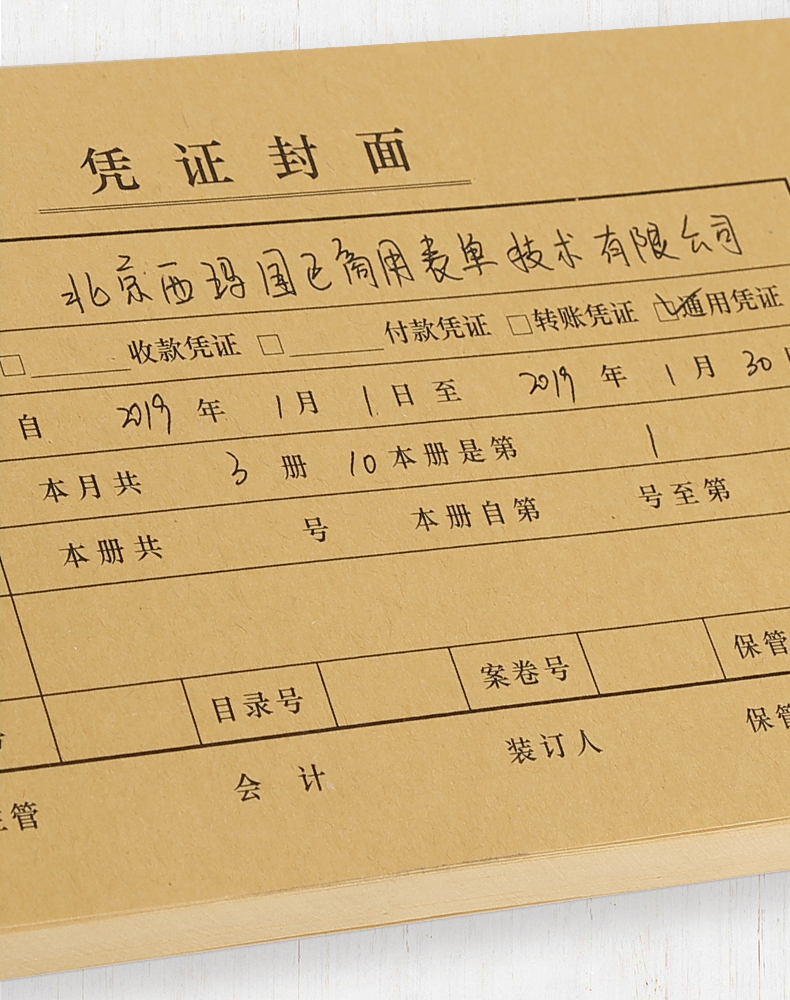 凭证封面
北京西玛国已商用表单技术有限公司
□ ______ 收款凭证 □ ______ 付款凭证 □ 转账凭证 ☑ 通用凭证
自 2019 年 1 月 1 日 至 2019 年 1 月 30
本月共 3 册 10 本册是第 1
本册共 号 本册自第 号至第
目录号 案卷号 保管
管 会计 装订人 保管